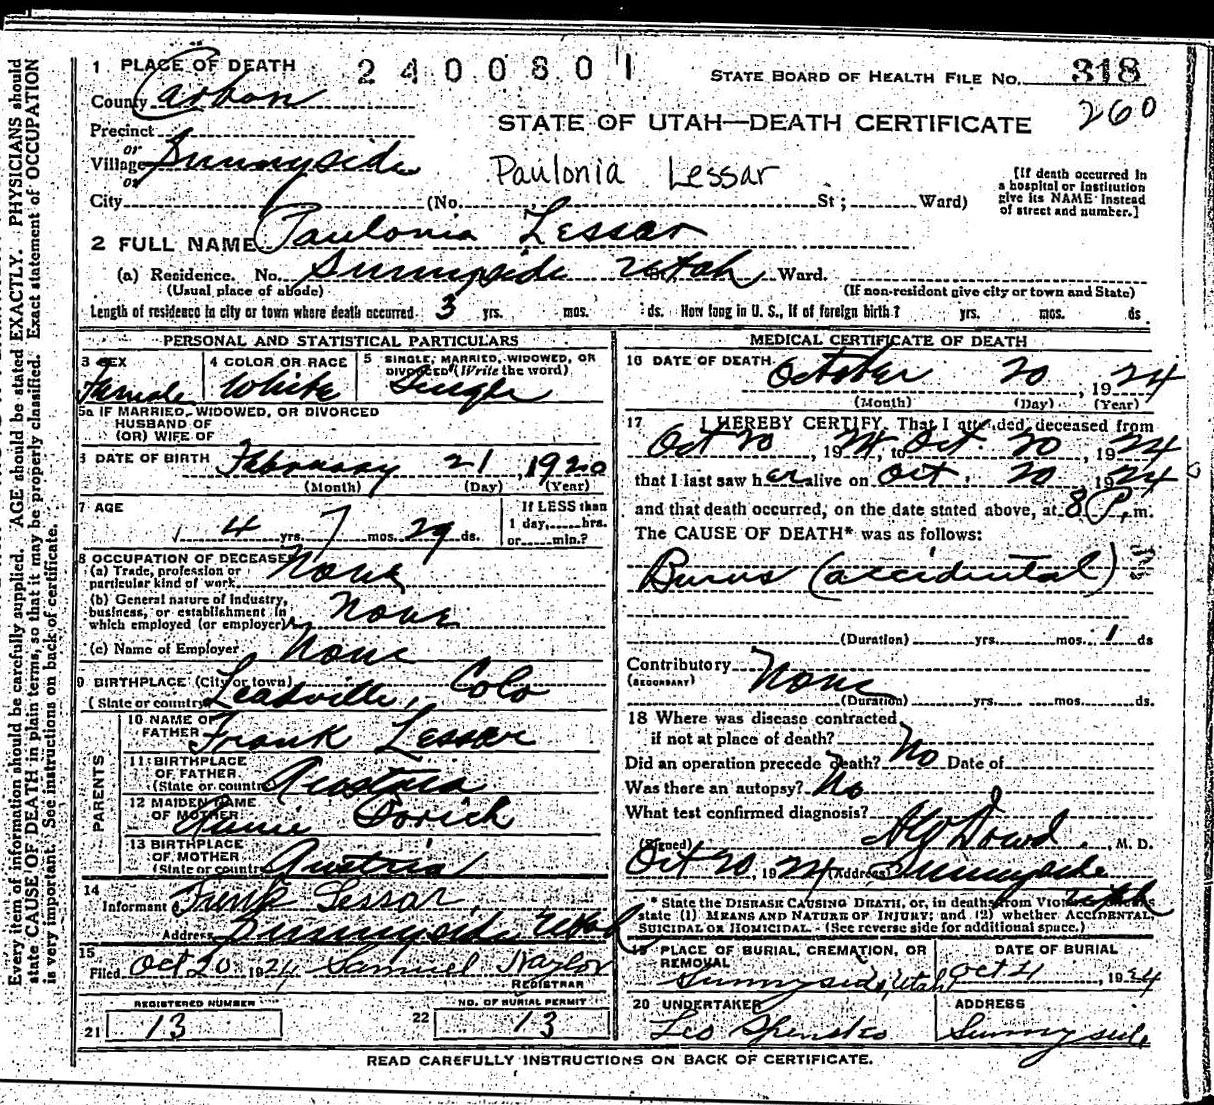 1 PLACE OF DEATH 2400801 STATE BOARD OF HEALTH FILE No. 318
County Carbon 260
STATE OF UTAH—DEATH CERTIFICATE
Precinct
or
Village Sunnyside Paulonia Lessar
or
City (No. St; Ward)
[If death occurred in
a hospital or institution
give its NAME instead
of street and number.]
2 FULL NAME Paulonia Lessar
(a) Residence. No. Sunnyside Utah Ward.
(Usual place of abode) (If non-resident give city or town and State)
Length of residence in city or town where death occurred 3 yrs. mos. ds. How long in U. S., if of foreign birth? yrs. mos. ds
PERSONAL AND STATISTICAL PARTICULARS
3 SEX
Female
4 COLOR OR RACE
White
5 SINGLE, MARRIED, WIDOWED, OR
DIVORCED (Write the word)
Single
5a IF MARRIED, WIDOWED, OR DIVORCED
HUSBAND OF
(OR) WIFE OF
6 DATE OF BIRTH February 21, 1920
(Month) (Day) (Year)
7 AGE
4 yrs. 7 mos. 29 ds.
If LESS than
1 day, hrs.
or min.?
8 OCCUPATION OF DECEASED
(a) Trade, profession or
particular kind of work None
(b) General nature of industry,
business, or establishment in
which employed (or employer) None
(c) Name of Employer None
9 BIRTHPLACE (City or town)
(State or country) Leadville, Colo
PARENTS
10 NAME OF
FATHER Frank Lessar
11 BIRTHPLACE
OF FATHER
(State or country) Austria
12 MAIDEN NAME
OF MOTHER Annie
13 BIRTHPLACE
OF MOTHER
(State or country) Austria
14
Informant Frank Lessar
Address Sunnyside Utah
15
Filed Oct 20 1924 Samuel Naylor
REGISTRAR
REGISTERED NUMBER
21 13
NO. OF BURIAL PERMIT
22 13
MEDICAL CERTIFICATE OF DEATH
16 DATE OF DEATH October 20, 1924
(Month) (Day) (Year)
17 I HEREBY CERTIFY, That I attended deceased from
Oct 20, 1924, to Oct. 20, 1924
that I last saw her alive on Oct. 20 1924
and that death occurred, on the date stated above, at 8 P. m.
The CAUSE OF DEATH* was as follows:
Burns (accidental)
(Duration) yrs. mos. 1 ds
Contributory None
(SECONDARY)
(Duration) yrs. mos. ds.
18 Where was disease contracted
if not at place of death?
Did an operation precede death? No Date of
Was there an autopsy? No
What test confirmed diagnosis?
(Signed) Dowd, M. D.
Oct 20, 1924 (Address) Sunnyside
Utah
* State the DISEASE CAUSING DEATH, or, in deaths from VIOLENT CAUSES
state (1) MEANS AND NATURE OF INJURY; and (2) whether ACCIDENTAL,
SUICIDAL OR HOMICIDAL. (See reverse side for additional space.)
19 PLACE OF BURIAL, CREMATION, OR
REMOVAL
Sunnyside, Utah
DATE OF BURIAL
Oct 21, 1924
20 UNDERTAKER
Leo
ADDRESS
Sunnyside
READ CAREFULLY INSTRUCTIONS ON BACK OF CERTIFICATE.
Every item of information should be carefully supplied. AGE should be stated EXACTLY. PHYSICIANS should
state CAUSE OF DEATH in plain terms, so that it may be properly classified. Exact statement of OCCUPATION
is very important. See instructions on back of certificate.